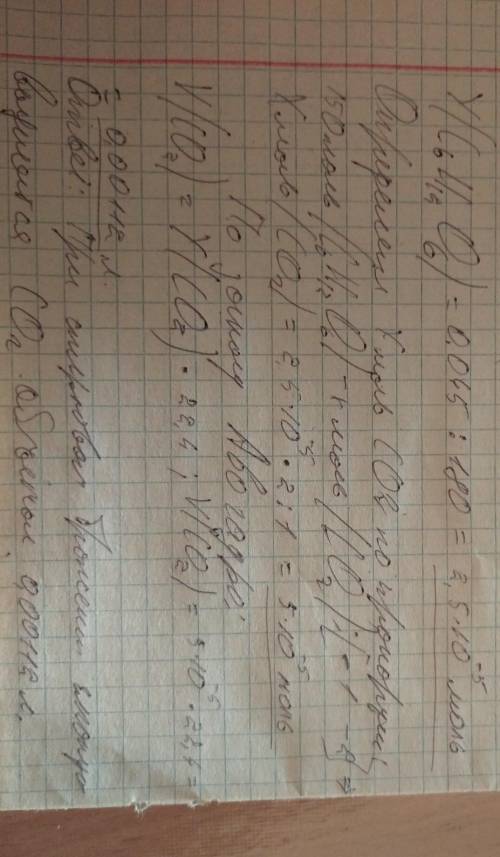 ν(C₆H₁₂O₆) = 0,045 : 180 = 2,5·10⁻⁵ моль
Определим X моль CO₂ по пропорции
моль (C₆H₁₂O₆) - моль (CO₂) = 1 - 2 =>
X моль (CO₂) = 2,5·10⁻⁵ · 2 : 1 = 5·10⁻⁵ моль
По закону Авогадро:
V(CO₂) = ν(CO₂) · 22,4 ; V(CO₂) = 5·10⁻⁵ · 22,4 =
= 0,00112 л.
Ответ: При спиртовом брожении глюкозы
выделится CO₂ объёмом 0,00112 л.